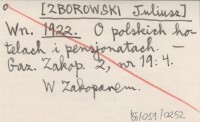 [ZBOROWSKI Juliusz]
Wn. 1922. O polskich ho-
telach i pensjonatach. —
Gaz. Zakop. 2, nr 19: 4.
W Zakopanem.